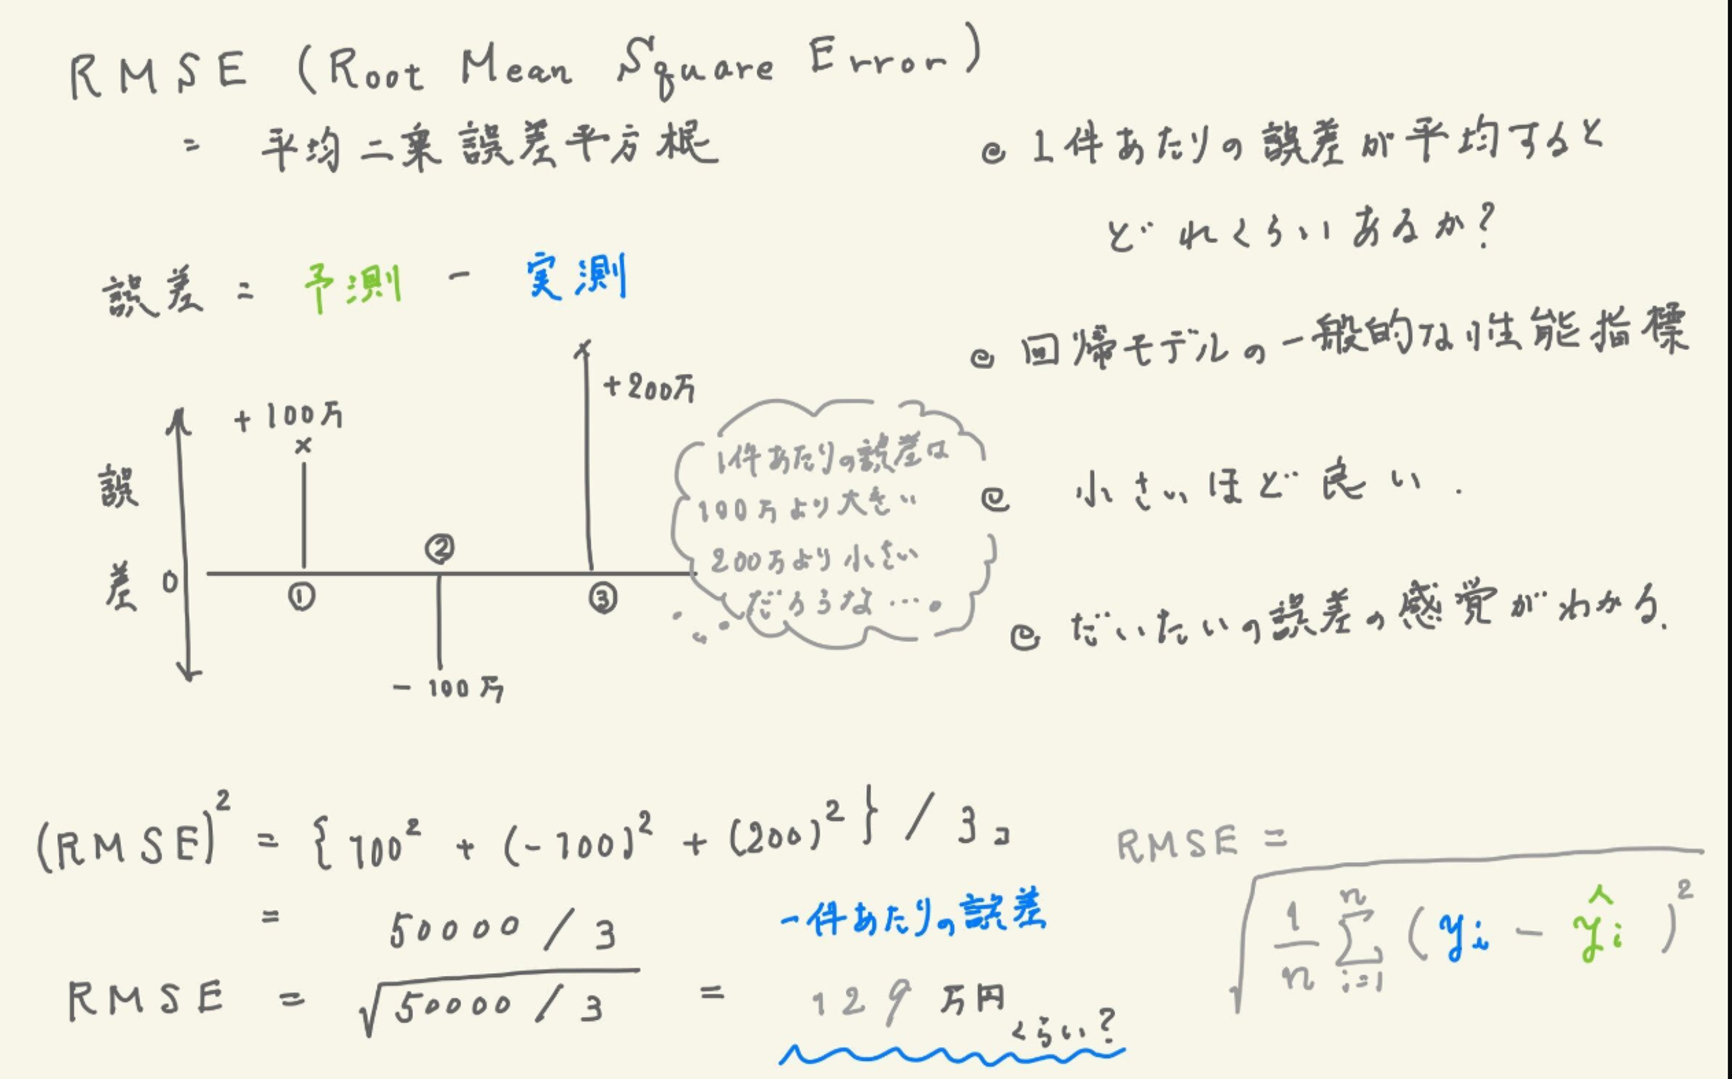 RMSE (Root Mean Square Error)
= 平均二乗誤差平方根
誤差 = 予測 - 実測
+100万
×
+200万
×
誤差
0
①
②
③
- 100万
1件あたりの誤差は
100万より大きい
200万より小さい
だろうな…。
1件あたりの誤差が平均すると
どれくらいあるか?
回帰モデルの一般的な性能指標
小さいほど良い.
だいたいの誤差の感覚がわかる.
(RMSE)² = {100² + (-100)² + (200)²} / 3
= 50000 / 3
RMSE = √50000 / 3 = 129万円
くらい?
一件あたりの誤差
RMSE =
√ 1/n n Σ i=1 (yi - ŷi)²